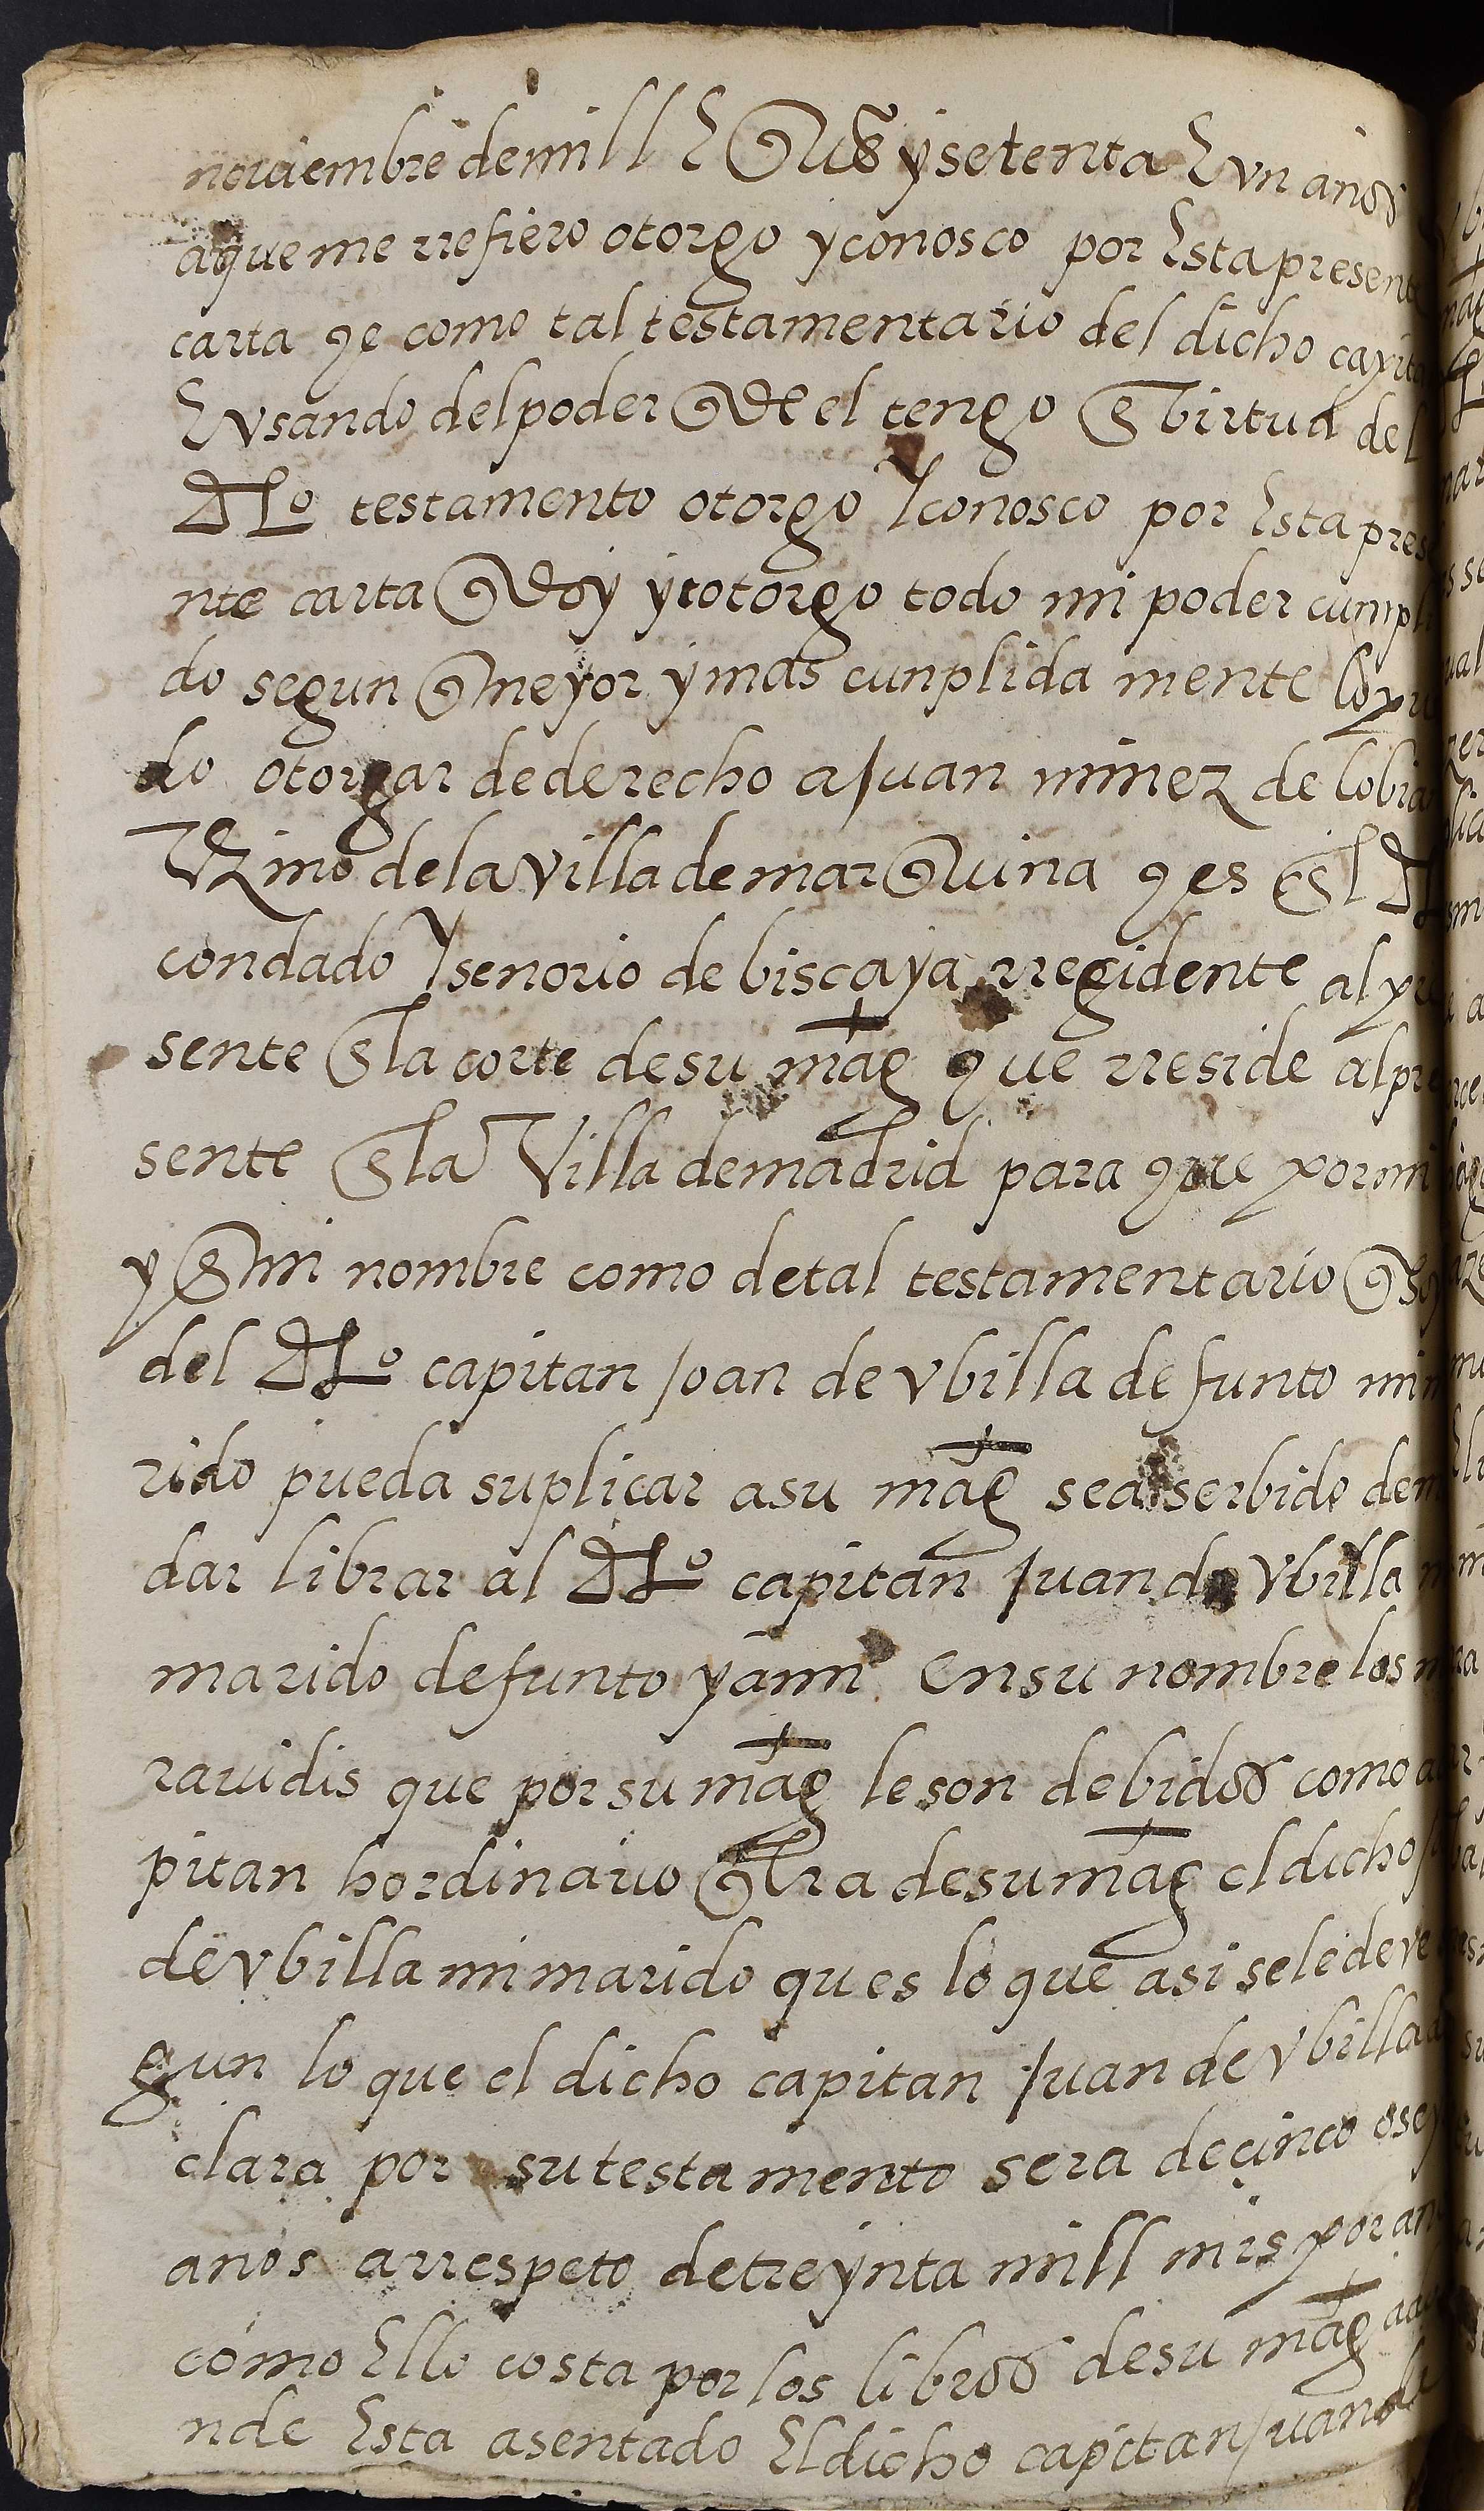 noviembre de mill E qus y setenta E vn años
a que me rrefiero otorgo y conosco por Esta present
carta qe como tal testamentario del dicho capit
E vsando del poder que de el tengo en birtud del
dho testamento otorgo y conosco por Esta pres
nte carta que doy y otorgo todo mi poder cumpl
do segun que meyor y mas cunplida mente lo pu
do otorgar de derecho a Juan minez de lobia
vzino de la villa de marquina q es en el
condado y senorio de biscaya rregidente al pre
sente en la corte de su mag que rreside al pre
sente en la Villa de madrid para que por mi
y en mi nombre como de tal testamentario que soy
del dho capitan Joan de vbilla defunto mi
rido pueda suplicar a su mag sea serbido de
dar librar al dho capitan Juan de vbilla
marido defunto y a mi en su nombre los
ravidis que por su mag le son debidos como
pitan hordinario que era de su mag el dicho
de vbilla mi marido ques lo que asi se le deve
gun lo que el dicho capitan Juan de vbilla
clara por su testamento sera de çinco o sey
anos arrespeto de treynta mill mrs por an
como Ello costa por los libros de su mag
nde Esta asentado El dicho capitan Juan de